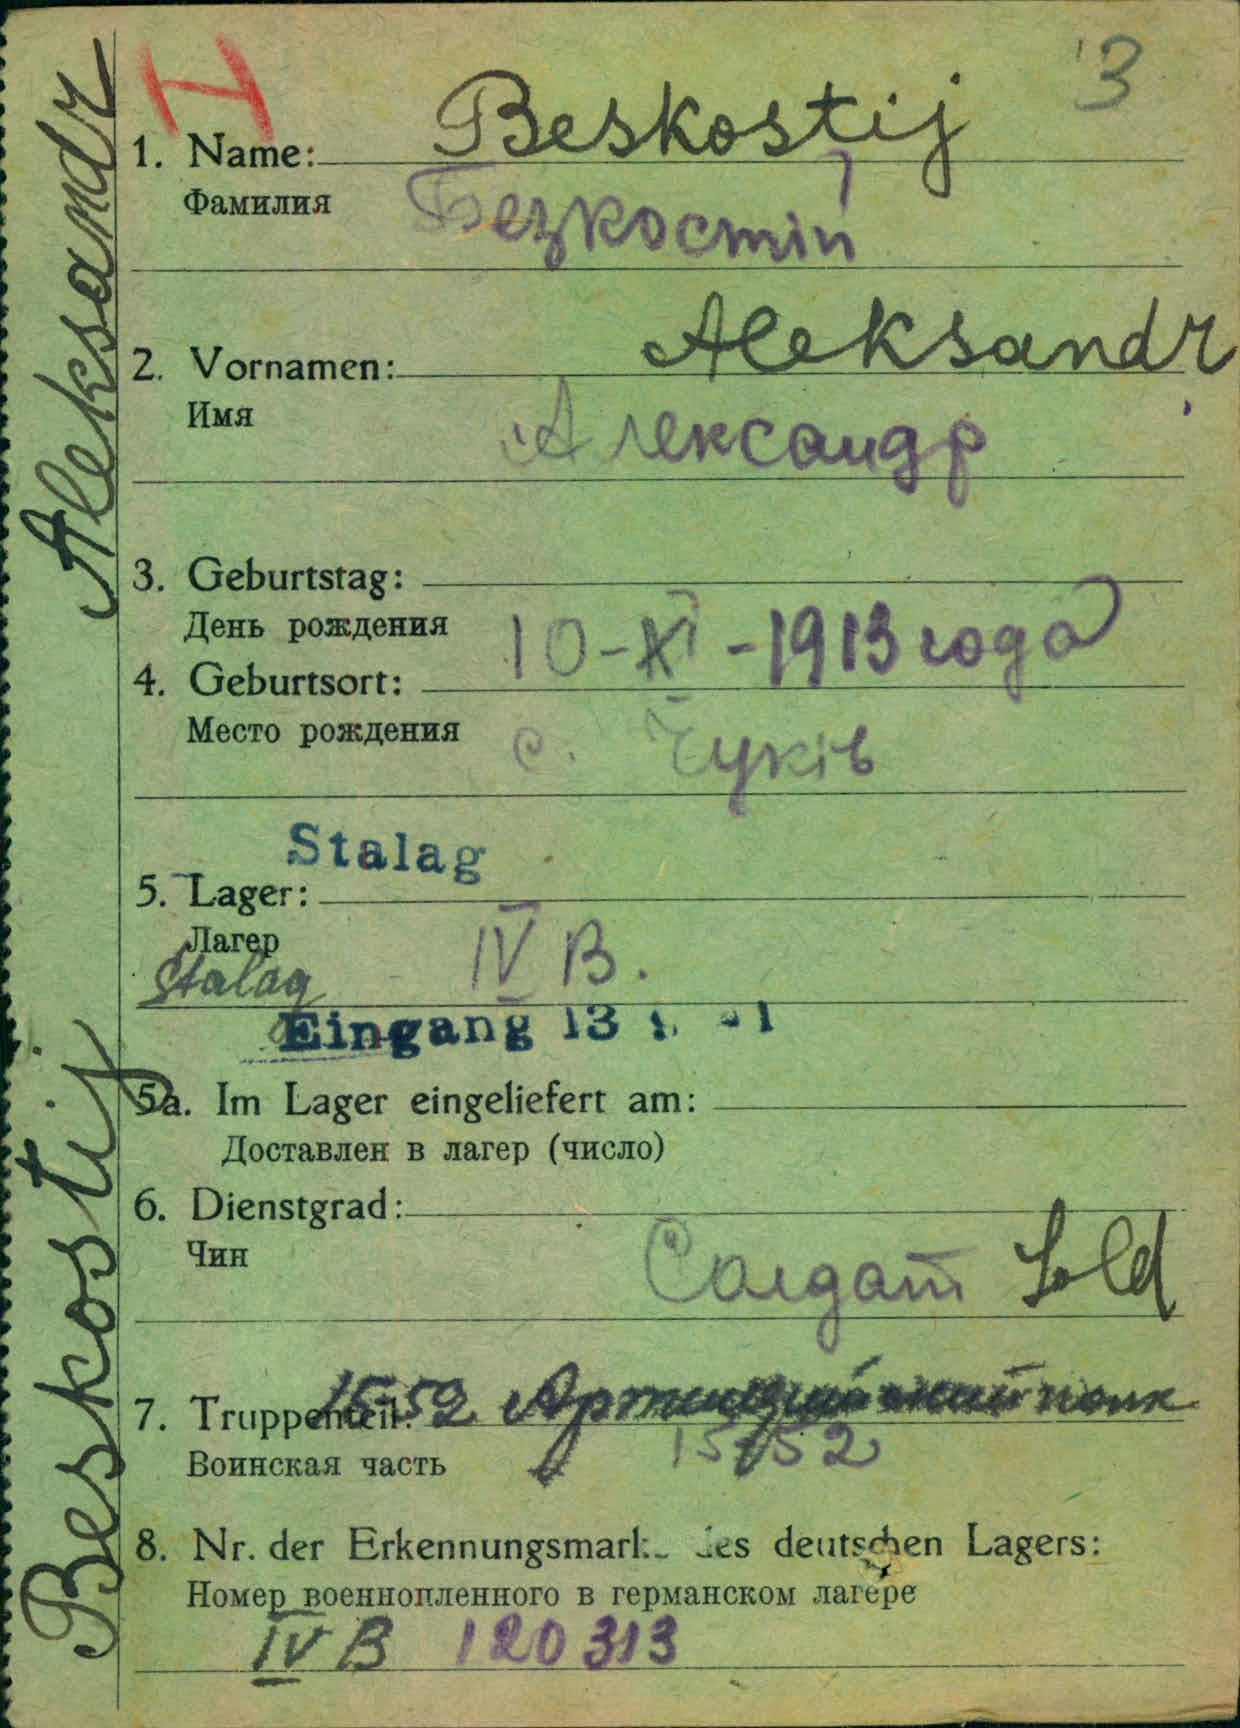 13
I
1. Name: Beskostij
Фамилия Безкостій
2. Vornamen: Aleksandr
Имя Александр
3. Geburtstag:
День рождения 10-XI-1913 года
4. Geburtsort:
Место рождения с. Чуків
Stalag
5. Lager:
Лагер IV B.
Stalag
Eingang 13
5a. Im Lager eingeliefert am:
Доставлен в лагер (число)
6. Dienstgrad:
Чин Солдат Sold
7. Truppenteil: 15-52 полк
Воинская часть 15-52
8. Nr. der Erkennungsmarke des deutschen Lagers:
Номер военнопленного в германском лагере
IV B 120313
Beskostij Aleksandr